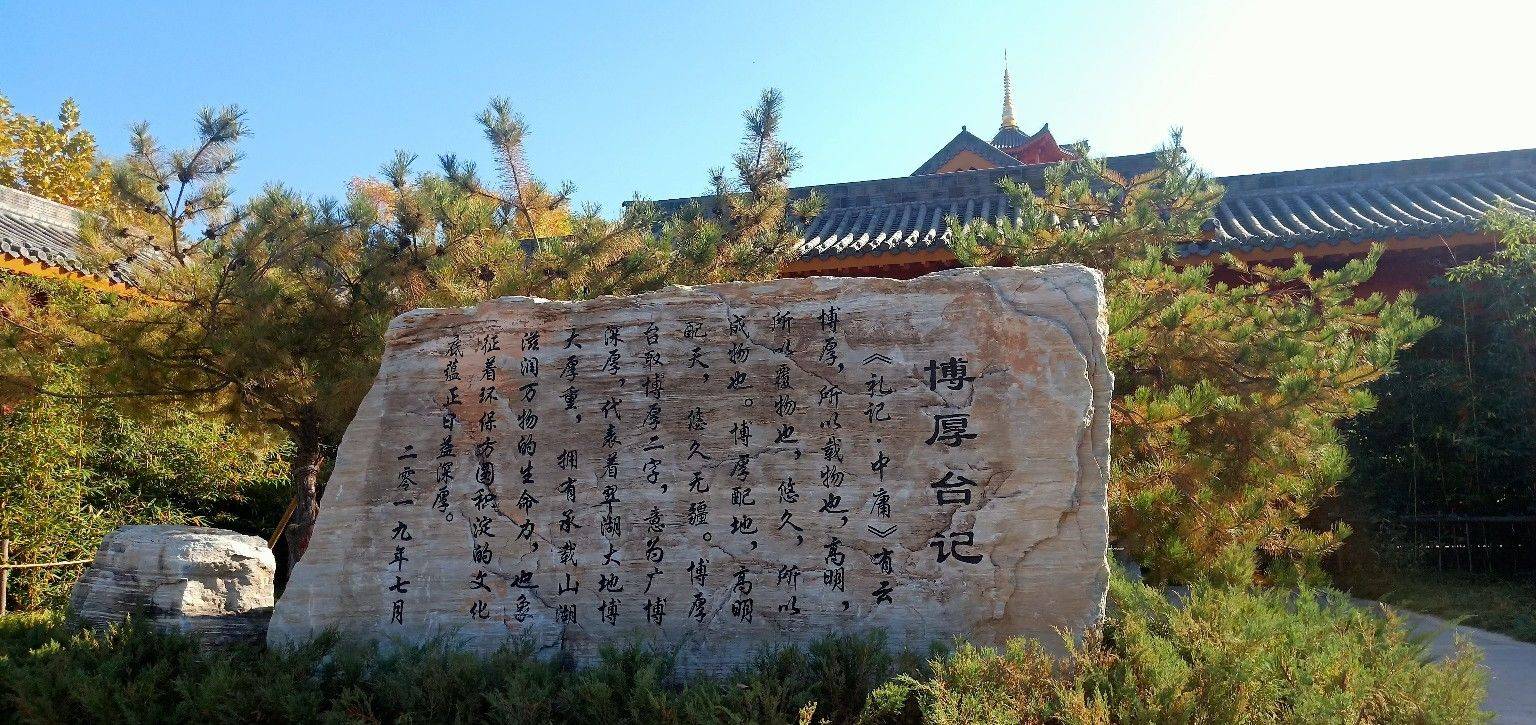 博厚台记
《礼记·中庸》有云
博厚，所以载物也，高明，
所以覆物也，悠久，所以
成物也。博厚配地，高明
配天，悠久无疆。博厚
台敢博厚二字，意为广博
深厚，代表着翠湖大地博
大厚重，拥有承载山湖
滋润万物的生命力，也象
征着环保坊圈积淀的文化
底蕴正日益深厚。
二零一九年七月